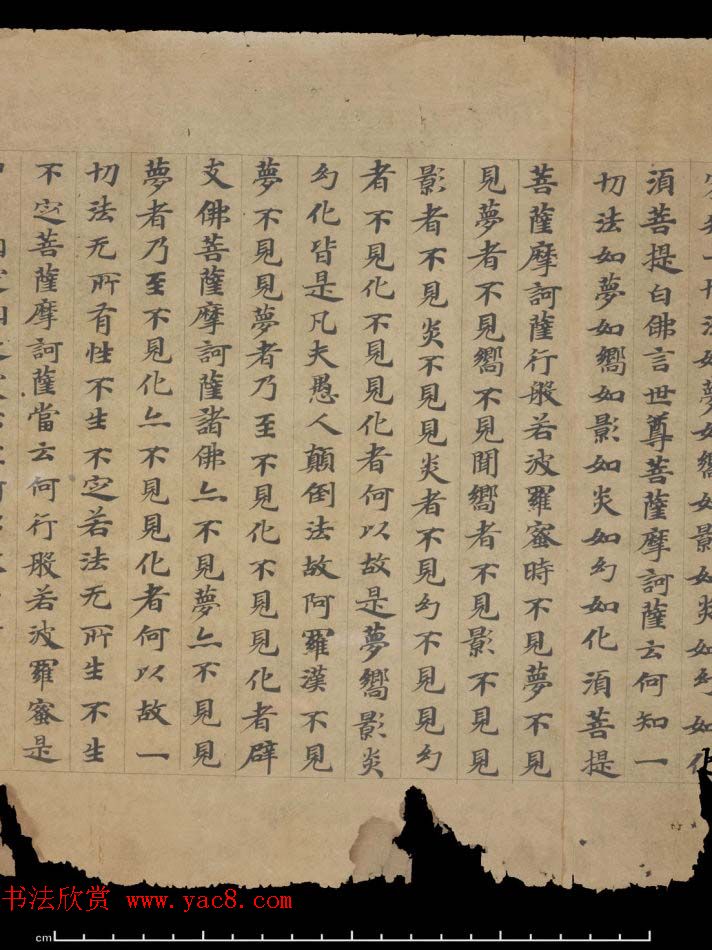 切法如夢如嚮如影如炎如幻如化
須菩提白佛言世尊菩薩摩訶薩云何知一
切法如夢如嚮如影如炎如幻如化須菩提
菩薩摩訶薩行般若波羅蜜時不見夢不見
見夢者不見嚮不見聞嚮者不見影不見見
影者不見炎不見見炎者不見幻不見見幻
者不見化不見見化者何以故是夢嚮影炎
幻化皆是凡夫愚人顛倒法故阿羅漢不見
夢不見見夢者乃至不見化不見見化者辟
支佛菩薩摩訶薩諸佛亦不見夢亦不見見
夢者乃至不見化亦不見見化者何以故一
切法无所有性不生不定若法无所生不生
不定菩薩摩訶薩當云何行般若波羅蜜是
书法欣赏 www.yac8.com
cm